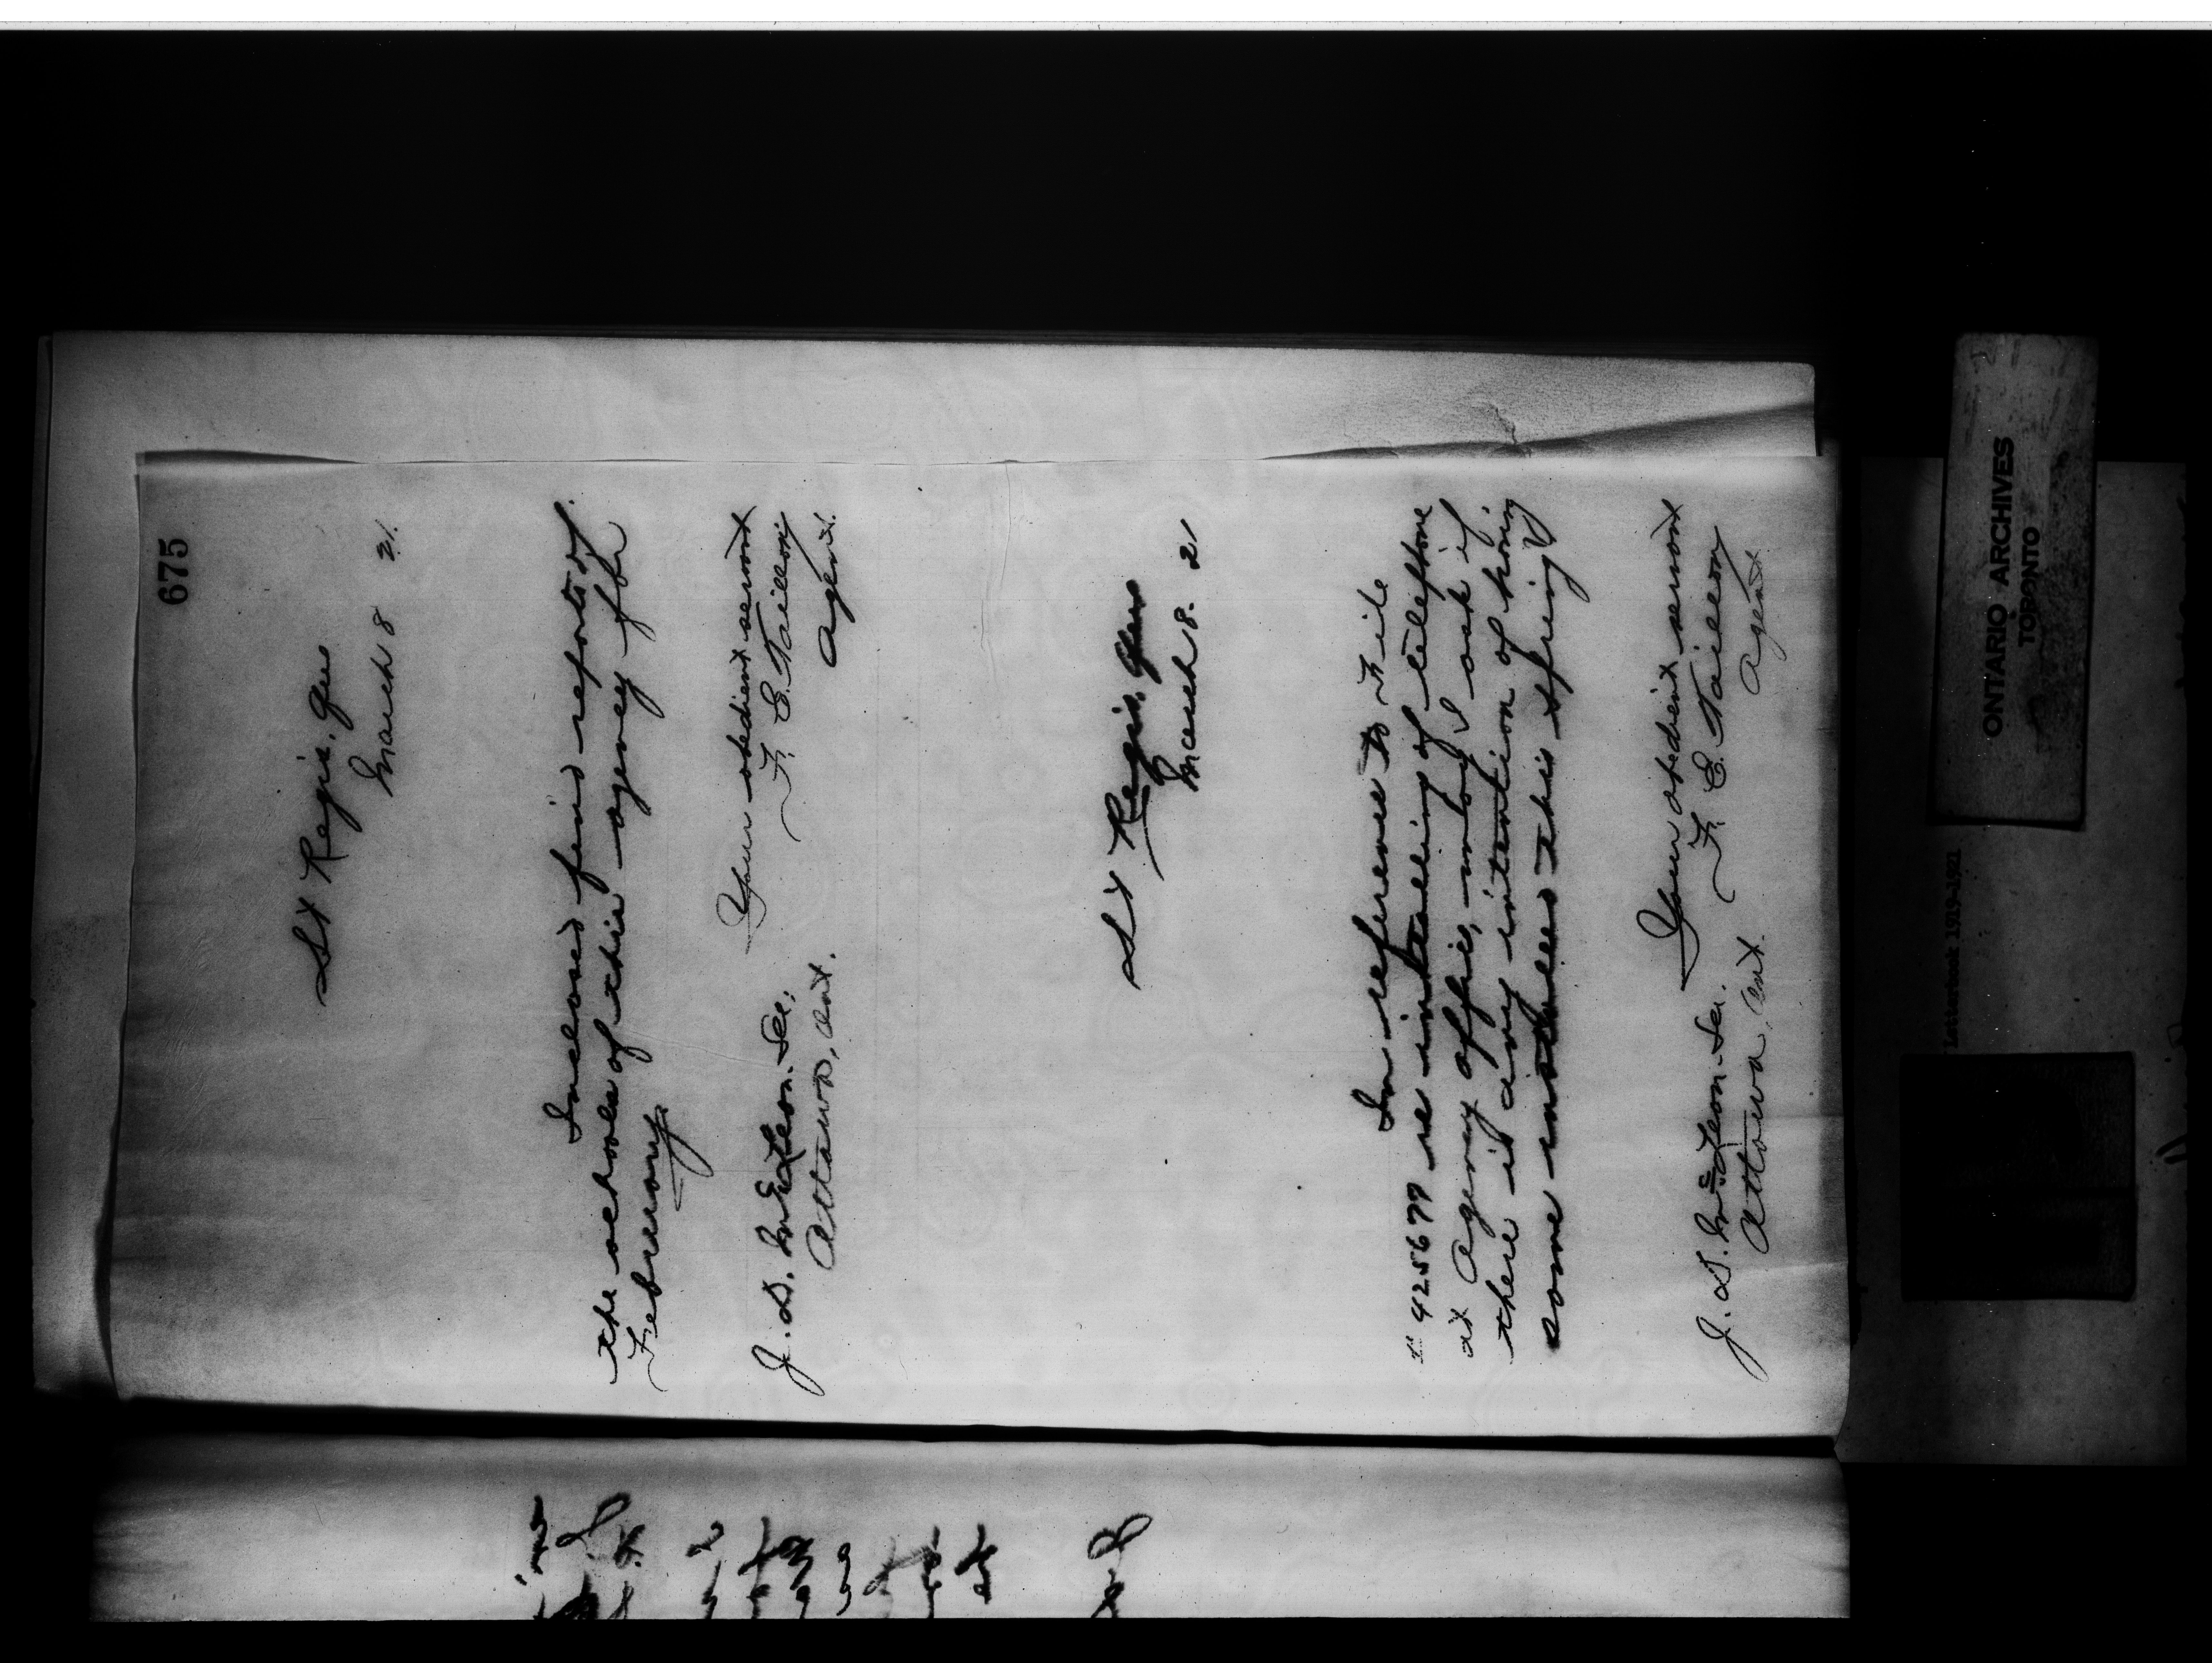 675
St Regis, Que
March 8 21.
Inclosed find reports of
the schools of this agency for
February
Your obedient servant
F. E. Taillon
Agent.
J. D. McLean. Sec.
Ottawa, Ont.
St Regis, Que
March 8. 21
In reference to File
425677 re intalling of telephone
at Agency office, may I ask if
there is any intention of having
some installed this spring
Your obedient servant
F. E. Taillon
Agent
J. D. McLean. Sec.
Ottawa, Ont.
ONTARIO ARCHIVES
TORONTO
Letterbook 1919-1921